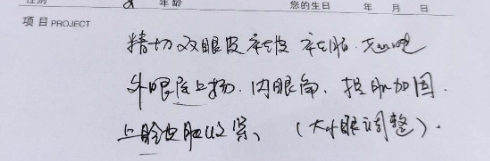 年龄 您的生日 年 月 日
项目 PROJECT
精切双眼皮 去皮 去脂
外眼尾上扬、内眼角、提肌加固
上睑皮肤收紧、(大小眼调整).